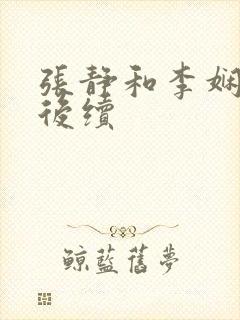 張靜和李嫻
後續
鯨藍舊夢